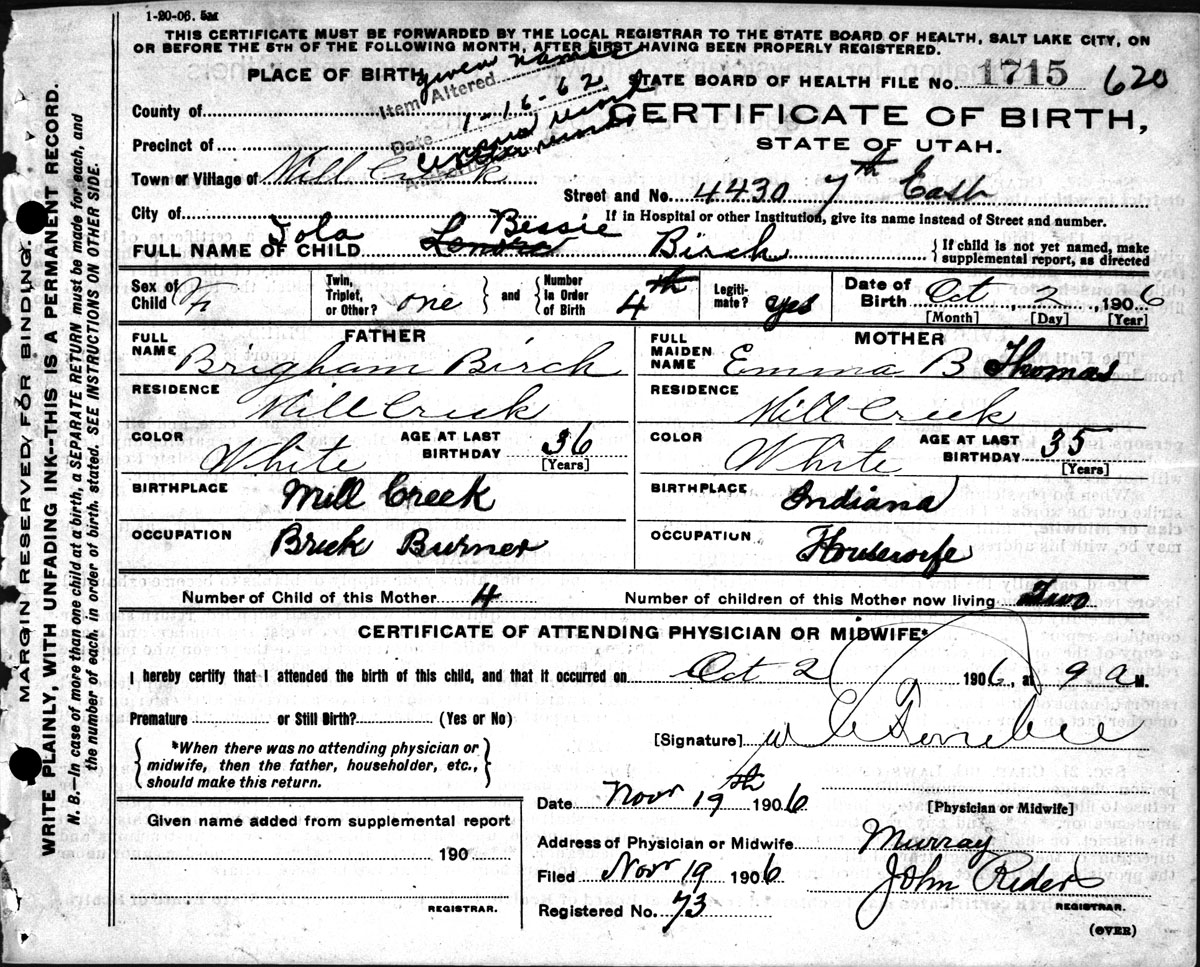 1-20-06. 5M
THIS CERTIFICATE MUST BE FORWARDED BY THE LOCAL REGISTRAR TO THE STATE BOARD OF HEALTH, SALT LAKE CITY, ON
OR BEFORE THE 5TH OF THE FOLLOWING MONTH, AFTER FIRST HAVING BEEN PROPERLY REGISTERED.
PLACE OF BIRTH
given name
Item Altered
STATE BOARD OF HEALTH FILE No. 1715 620
County of
Date 1-16-62
CERTIFICATE OF BIRTH,
Precinct of
STATE OF UTAH.
Town or Village of Mill Creek
Street and No. 4430 7th East
City of
If in Hospital or other Institution, give its name instead of Street and number.
FULL NAME OF CHILD Iola Lenora Bessie Birch
{If child is not yet named, make
supplemental report, as directed
Sex of Child F
Twin, Triplet, or Other? one } and { Number In Order of Birth 4th
Legitimate? yes
Date of Birth Oct 2, 1906
[Month] [Day] [Year]
FATHER
FULL NAME Brigham Birch
RESIDENCE Mill Creek
COLOR White AGE AT LAST BIRTHDAY 36 [Years]
BIRTHPLACE Mill Creek
OCCUPATION Brick Burner
MOTHER
FULL MAIDEN NAME Emma B Thomas
RESIDENCE Mill Creek
COLOR White AGE AT LAST BIRTHDAY 35 [Years]
BIRTHPLACE Indiana
OCCUPATION Housewife
Number of Child of this Mother 4 Number of children of this Mother now living Two
CERTIFICATE OF ATTENDING PHYSICIAN OR MIDWIFE*
I hereby certify that I attended the birth of this child, and that it occurred on Oct 2 1906, at 9 a M.
Premature or Still Birth? (Yes or No)
{*When there was no attending physician or
midwife, then the father, householder, etc.,
should make this return.}
[Signature]
Date Nov 19th 1906
[Physician or Midwife]
Given name added from supplemental report
190
REGISTRAR.
Address of Physician or Midwife Murray
Filed Nov 19 1906 John Rider
Registered No. 73 REGISTRAR.
(OVER)
MARGIN RESERVED FOR BINDING.
WRITE PLAINLY, WITH UNFADING INK--THIS IS A PERMANENT RECORD.
N. B.--In case of more than one child at a birth, a SEPARATE RETURN must be made for each, and
the number of each, in order of birth, stated. SEE INSTRUCTIONS ON OTHER SIDE.